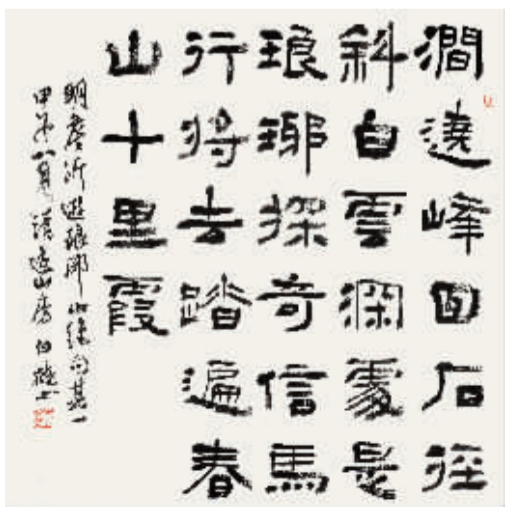 澗遶峰回石徑
斜白雲深處是
琅琊探奇信馬
行將去踏遍春
山十里霞
明詹沂遊琅琊山絕句其一
甲午八月山房